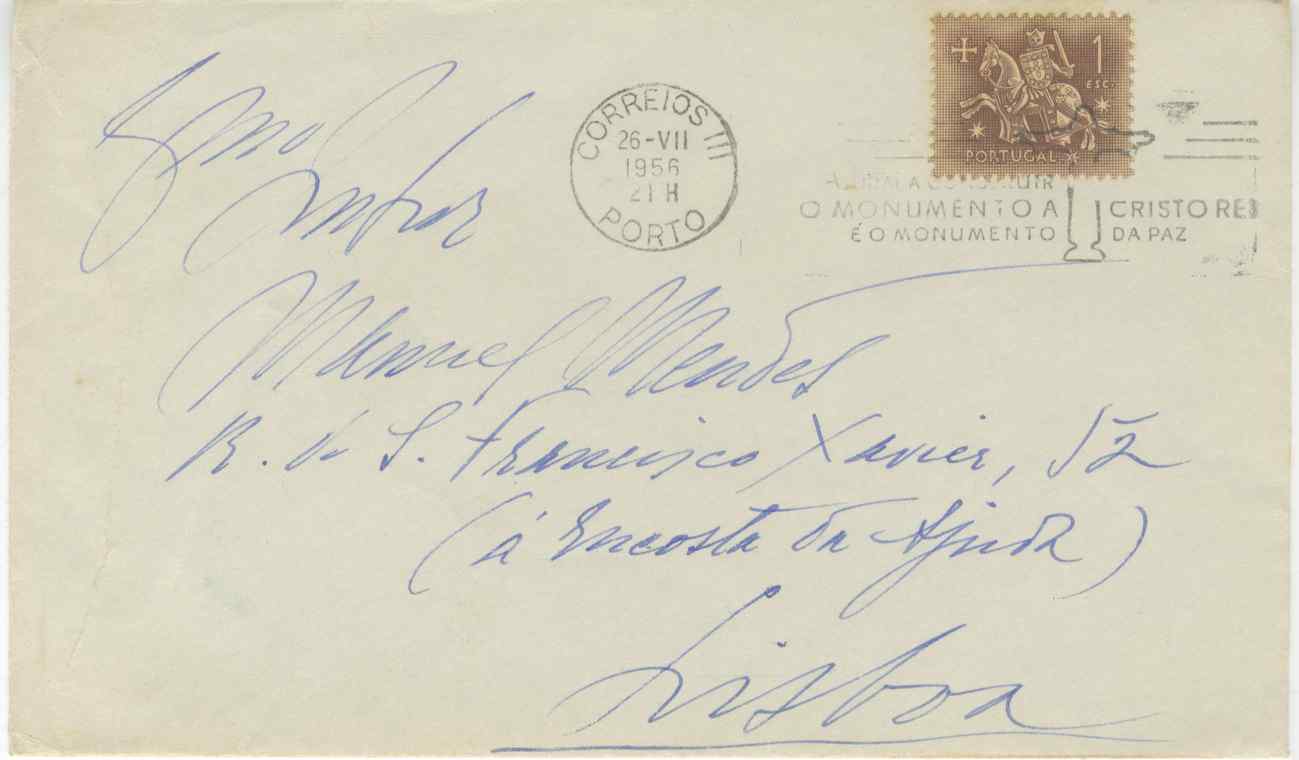 CORREIOS III
26-VII
1956
21 H
PORTO
1
ESC.
PORTUGAL
A CONSTRUIR
O MONUMENTO A CRISTO REI
É O MONUMENTO DA PAZ
Exmo
Senhor
Manuel Mendes
R. de S. Francisco Xavier, 52
(à Encosta da Ajuda)
Lisboa